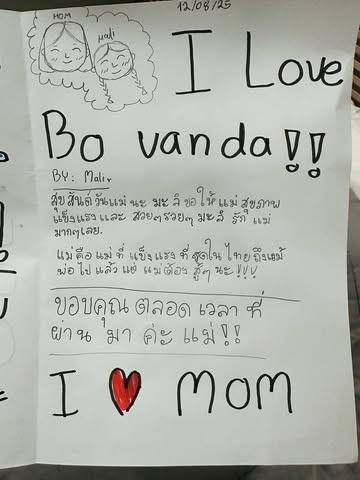 12/08/25
MOM
mali
I Love
Bo vanda!!
BY: Mali
สุขสันต์วันแม่นะ มะลิขอให้แม่สุขภาพ
แข็งแรงและ สวยๆรวยๆ มะลิ รัก แม่
มากๆเลย.
แม่คือแม่ที่แข็งแรงที่สุดใน ไทย ถึงแม้
พ่อไป แล้ว แต่ แม่ต้อง สู้ๆ นะ!!!
ขอบคุณ ตลอด เวลา ที่
ผ่าน มา ค่ะ แม่!!
I MOM